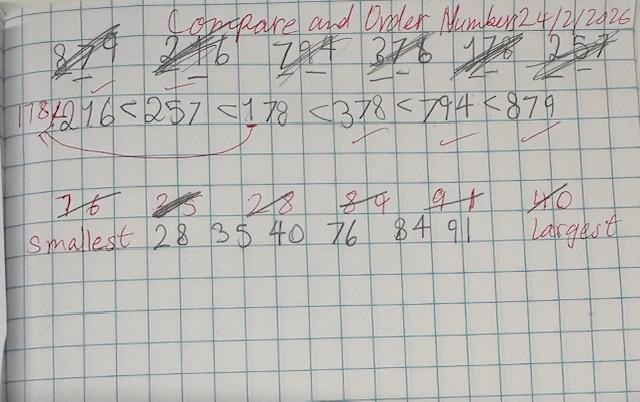 Compare and Order Number 24/2/2026
879 216 794 378 178 257
178/ 216 < 257 < 178 < 378 < 794 < 879
76 35 28 84 91 40
smallest 28 35 40 76 84 91 Largest